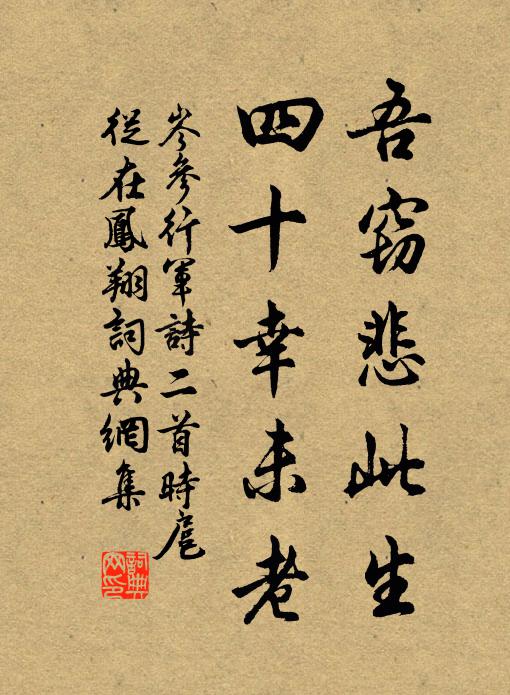 吾窃悲此生
四十幸未老
岑參行軍詩二首時扈
從在鳳翔詞典網集
詞典
网印